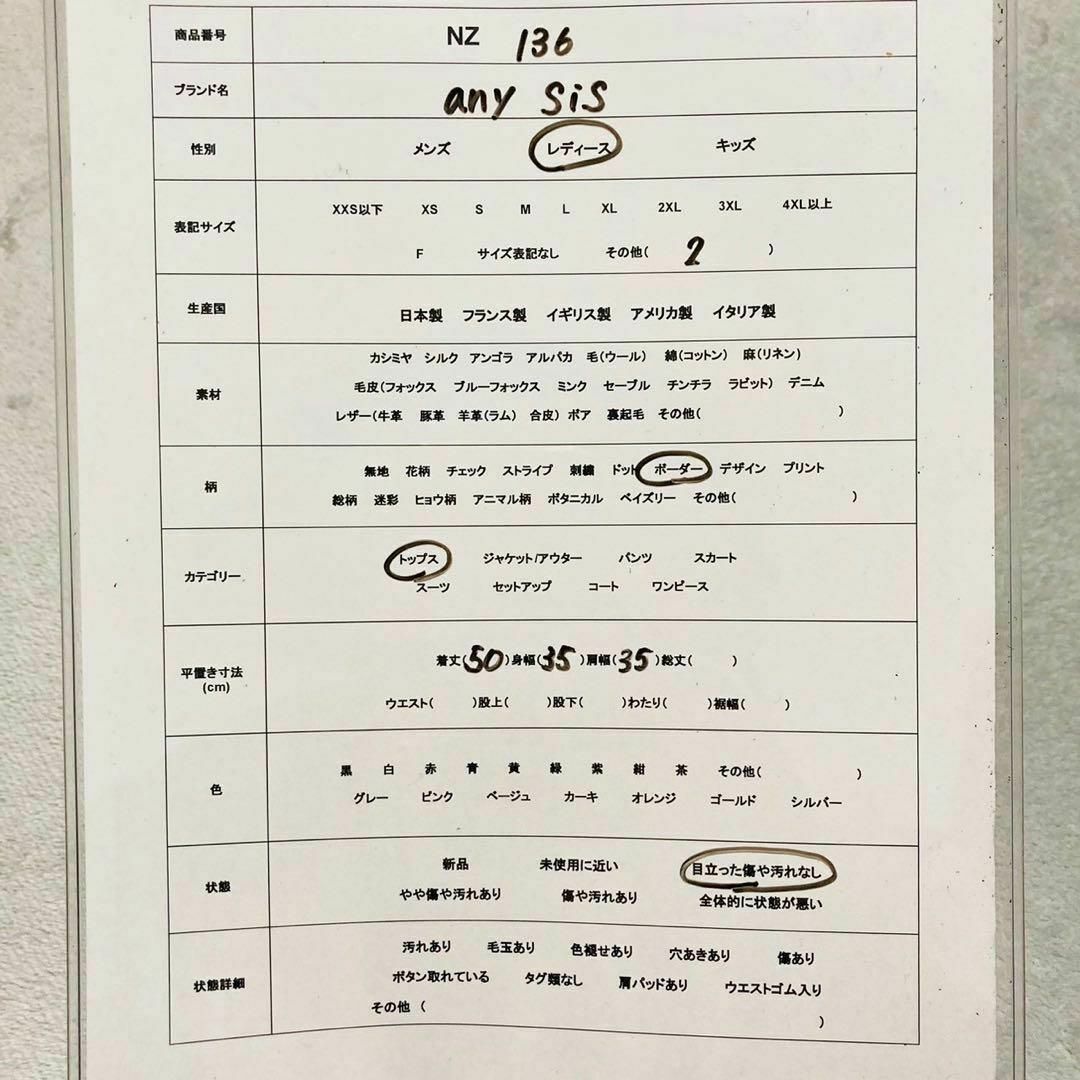 商品番号 NZ 136
ブランド名 any SiS
性別 メンズ レディース キッズ
XXS以下 XS S M L XL 2XL 3XL 4XL以上
表記サイズ
F サイズ表記なし その他( 2 )
生産国 日本製 フランス製 イギリス製 アメリカ製 イタリア製
カシミヤ シルク アンゴラ アルパカ 毛(ウール) 綿(コットン) 麻(リネン)
素材 毛皮(フォックス ブルーフォックス ミンク セーブル チンチラ ラビット) デニム
レザー(牛革 豚革 羊革(ラム) 合皮) ボア 裏起毛 その他( )
柄 無地 花柄 チェック ストライプ 刺繍 ドット ボーダー デザイン プリント
総柄 迷彩 ヒョウ柄 アニマル柄 ボタニカル ペイズリー その他( )
トップス ジャケット/アウター パンツ スカート
カテゴリー
スーツ セットアップ コート ワンピース
着丈(50)身幅(35)肩幅(35)総丈( )
平置き寸法
(cm)
ウエスト( )股上( )股下( )わたり( )裾幅( )
黒 白 赤 青 黄 緑 紫 紺 茶 その他( )
色
グレー ピンク ベージュ カーキ オレンジ ゴールド シルバー
新品 未使用に近い 目立った傷や汚れなし
状態
やや傷や汚れあり 傷や汚れあり 全体的に状態が悪い
汚れあり 毛玉あり 色褪せあり 穴あきあり 傷あり
状態詳細 ボタン取れている タグ類なし 肩パッドあり ウエストゴム入り
その他 ( )